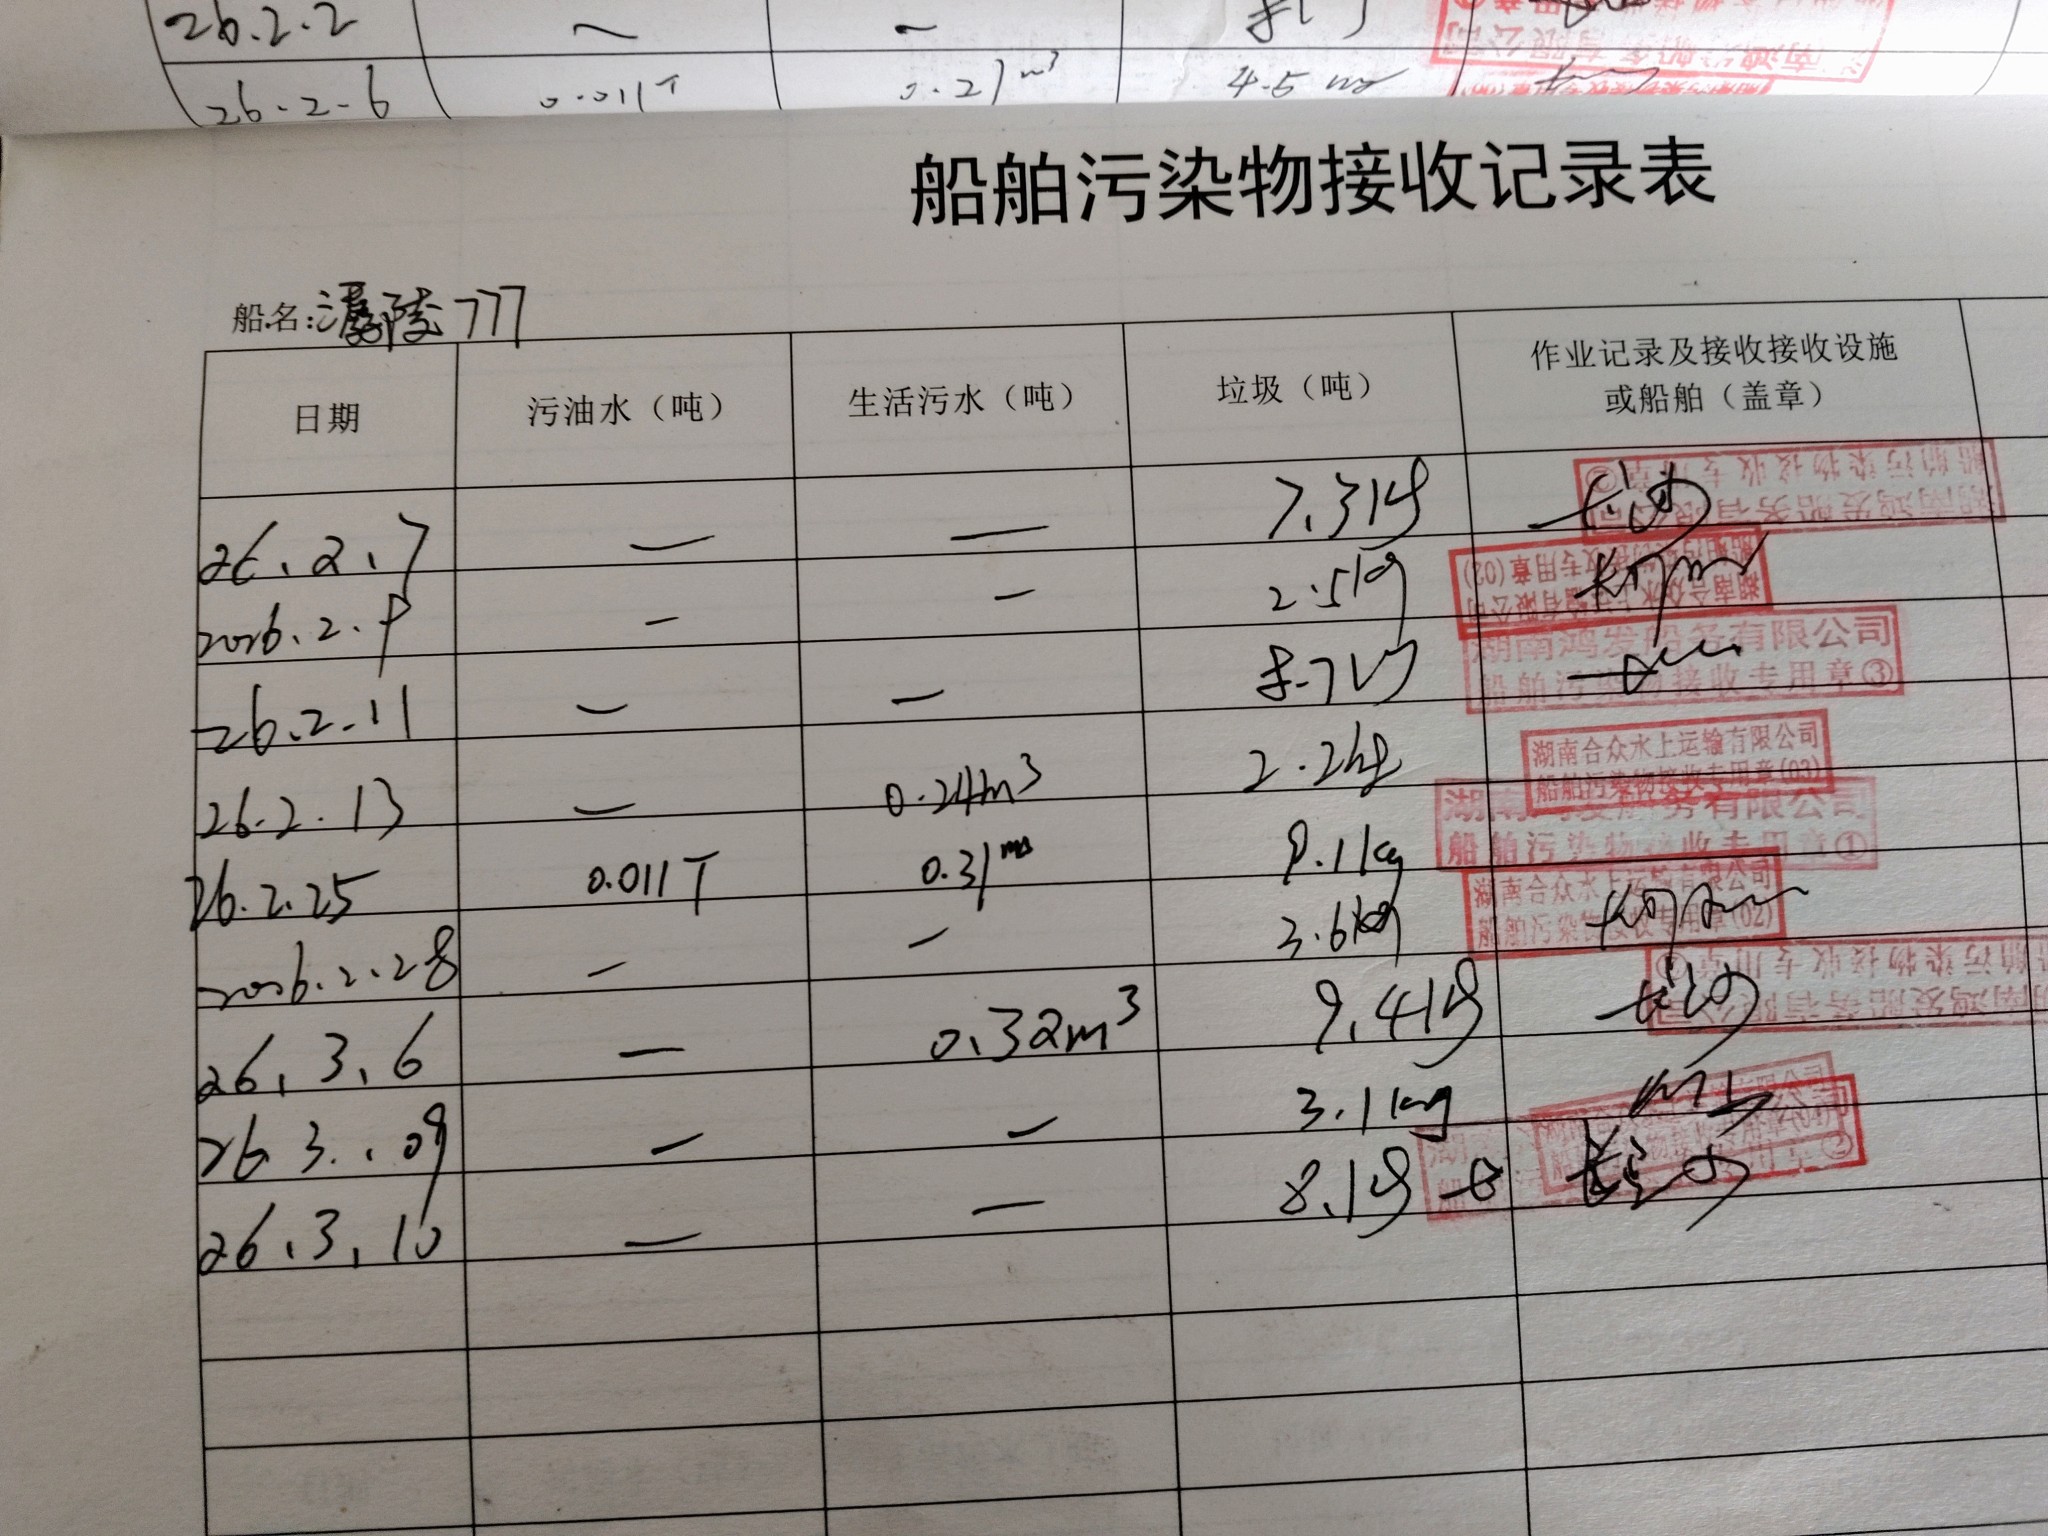 26.2.2 — —
26.2.6 0.011T 0.21m³ 4.5
船舶污染物接收记录表
船名: 陵777
日期 污油水（吨） 生活污水（吨） 垃圾（吨） 作业记录及接收接收设施
或船舶（盖章）
26.2.7 — — 7.3kg
船舶污染物接收专用章②
湖南鸿发船务有限公司
2026.2.9 — — 2.5kg
船舶污染物接收专用章(02)
湖南合众水上运输有限公司
26.2.11 — — 8.7kg
湖南鸿发船务有限公司
船舶污染物接收专用章③
26.2.13 — 0.24m³ 2.2kg
湖南合众水上运输有限公司
船舶污染物接收专用章(03)
26.2.25 0.011T 0.31m³ 9.1kg
湖南鸿发船务有限公司
船舶污染物接收专用章①
2026.2.28 — — 3.6kg
湖南合众水上运输有限公司
船舶污染物接收专用章(02)
26.3.6 — 0.32m³ 9.4kg
船舶污染物接收专用章
湖南鸿发船务有限公司
26.3.09 — — 3.1kg
26.3.10 — — 8.1kg